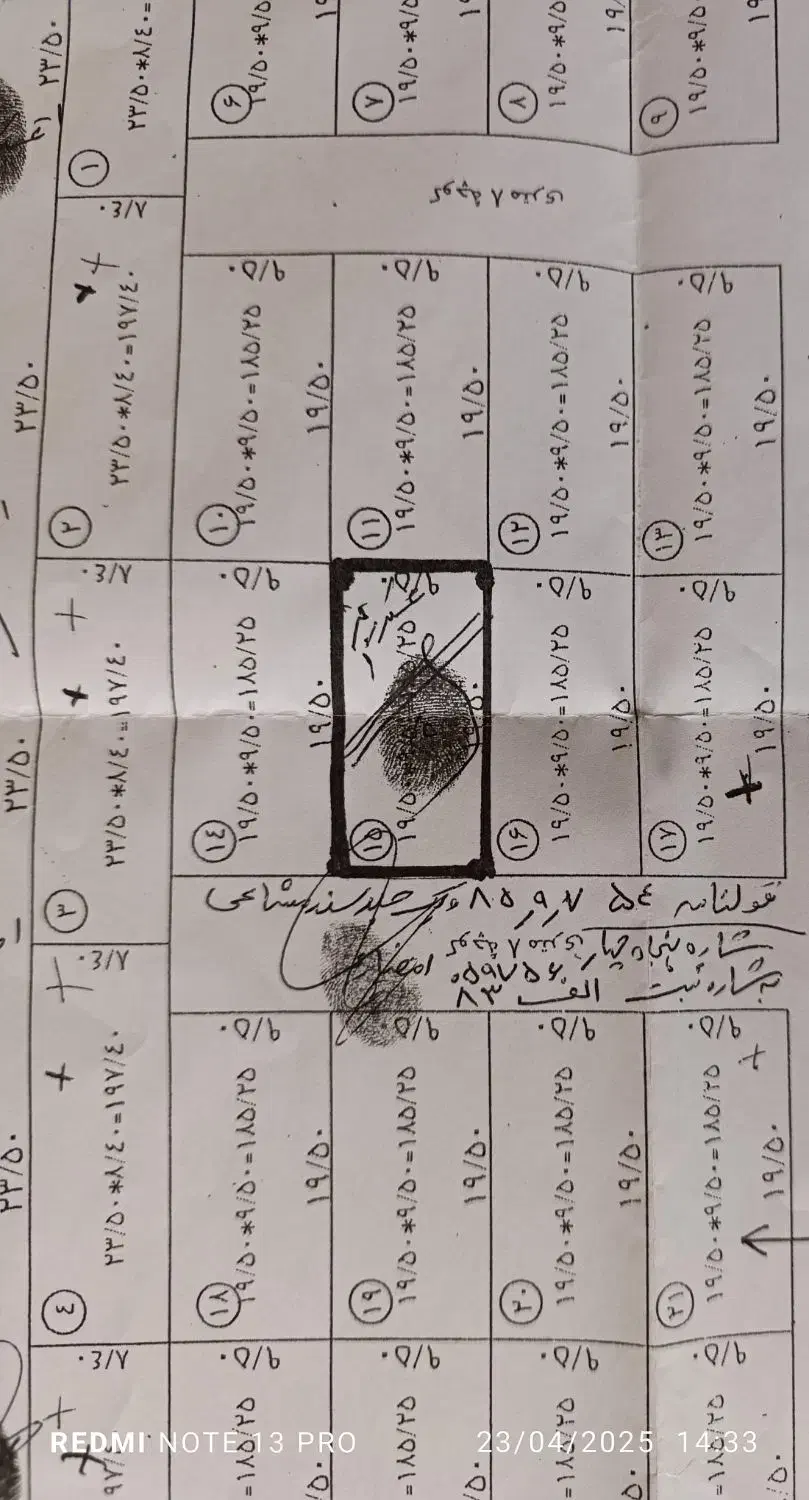 ۲۳/۵۰
۲۳/۵۰*۸/٤۰=
۱
۱۹/۵۰*۹/۵
۶
۱۹/۵۰*۹/۵
۷
۱۹/۵۰*۹/۵
۸
۱۹/۵۰*۹/۵۰
۹
کوچه ۸ متری
۸/٤۰
۲۳/۵۰*۸/٤۰=۱۹۷/٤۰
۲۳/۵۰
۲
۹/۵۰
۱۹/۵۰*۹/۵۰=۱۸۵/۲۵
۱۹/۵۰
۱۰
۹/۵۰
۱۹/۵۰*۹/۵۰=۱۸۵/۲۵
۱۹/۵۰
۱۱
۹/۵۰
۱۹/۵۰*۹/۵۰=۱۸۵/۲۵
۱۹/۵۰
۱۲
۹/۵۰
۱۹/۵۰*۹/۵۰=۱۸۵/۲۵
۱۹/۵۰
۱۳
۸/٤۰
۲۳/۵۰*۸/٤۰=۱۹۷/٤۰
۲۳/۵۰
۳
۹/۵۰
۱۹/۵۰*۹/۵۰=۱۸۵/۲۵
۱۹/۵۰
۱٤
۹/۵۰
۱۹/۵۰
۱۵
۹/۵۰
۱۹/۵۰*۹/۵۰=۱۸۵/۲۵
۱۹/۵۰
۱۶
۹/۵۰
۱۹/۵۰*۹/۵۰=۱۸۵/۲۵
۱۹/۵۰
۱۷
قولنامه
کوچه ۸ متری
شماره ثبت الف ۸۳
۸/٤۰
۲۳/۵۰*۸/٤۰=۱۹۷/٤۰
۲۳/۵۰
٤
۹/۵۰
۱۹/۵۰*۹/۵۰=۱۸۵/۲۵
۱۹/۵۰
۱۸
۹/۵۰
۱۹/۵۰*۹/۵۰=۱۸۵/۲۵
۱۹/۵۰
۱۹
۹/۵۰
۱۹/۵۰*۹/۵۰=۱۸۵/۲۵
۱۹/۵۰
۲۰
۹/۵۰
۱۹/۵۰*۹/۵۰=۱۸۵/۲۵
۱۹/۵۰
۲۱
۸/٤۰
۹/۵۰
=۱۸۵/۲۵
۹/۵۰
=۱۸۵/۲۵
۹/۵۰
=۱۸۵/۲۵
۹/۵۰
=۱۸۵/۲۵
REDMI NOTE 13 PRO
23/04/2025 14:33